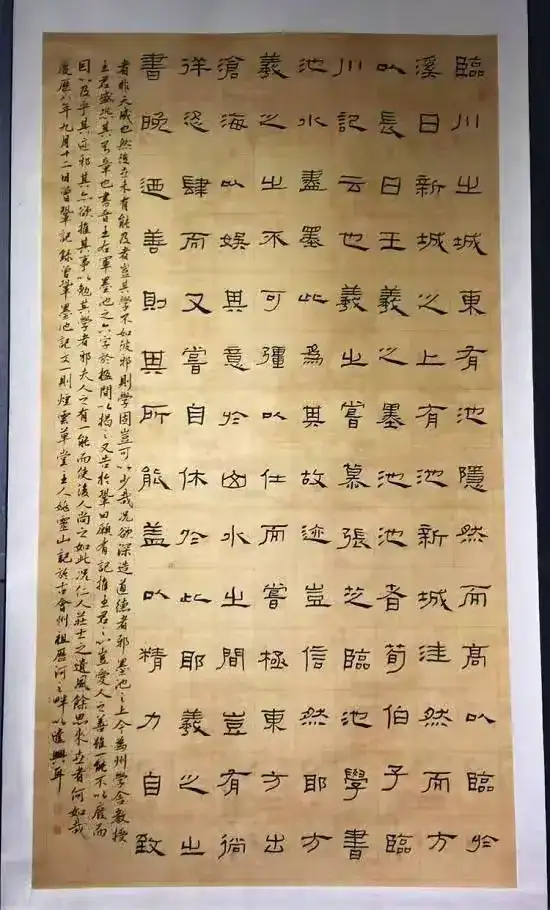 臨川之城東有池隱然而高以臨於
溪曰新城之上有池新城洼然而方
以長曰王羲之墨池池者荀伯子臨
川記云也羲之嘗慕張芝臨池學書
池水盡墨此為其故迹豈信然耶方
羲之之不可彊以仕而嘗極東方出
滄海以娛其意於山水之間豈有徜
徉恣肆而又嘗自休於此耶羲之之
書晚迺善則其所能蓋以精力自致
者非天成也然後世未有能及者豈其學不如彼邪則學固豈可以少哉況欲深造道德者邪墨池之上今為州學舍教授
王君盛恐其不章也書晉王右軍墨池之六字於楹間以揭之又告於鞏曰願有記推王君之心豈愛人之善雖一能不以廢而
因以及乎其迹邪其亦欲推其事以勉其學者邪夫人之有一能而使後人尚之如此況仁人莊士之遺風餘思來世者何如哉
慶曆八年九月十二日曾鞏記 錄曾鞏墨池記文一則煙雲草堂主人姚靈山記於古會州祖厲河之畔以遣興耳